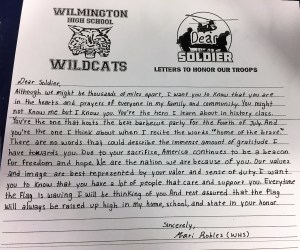 WILMINGTON
HIGH SCHOOL
WILDCATS
Dear
SOLDIER
LETTERS TO HONOR OUR TROOPS
Dear Soldier,
Although we might be thousands of miles apart, I want you to know that you are
in the hearts and prayers of everyone in my family and community. You might
not know me but I know you. You're the hero I learn about in history class.
You're the one that hosts the best barbecue party for the Fourth of July. And
you're the one I think about when I recite the words "home of the brave."
There are no words that could describe the immense amount of gratitude I
have towards you. Due to your sacrifice, America continues to be a beacon
for freedom and hope. We are the nation we are because of you. Our values
and image are best represented by your valor and sense of duty. I want
you to know that you have a lot of people that care and support you. Everytime
the flag is waving I'll be thinking of you. And rest assured that the flag
will always be raised up high in my home, school, and state in your honor.
Sincerely,
Mari Robles (WHS)